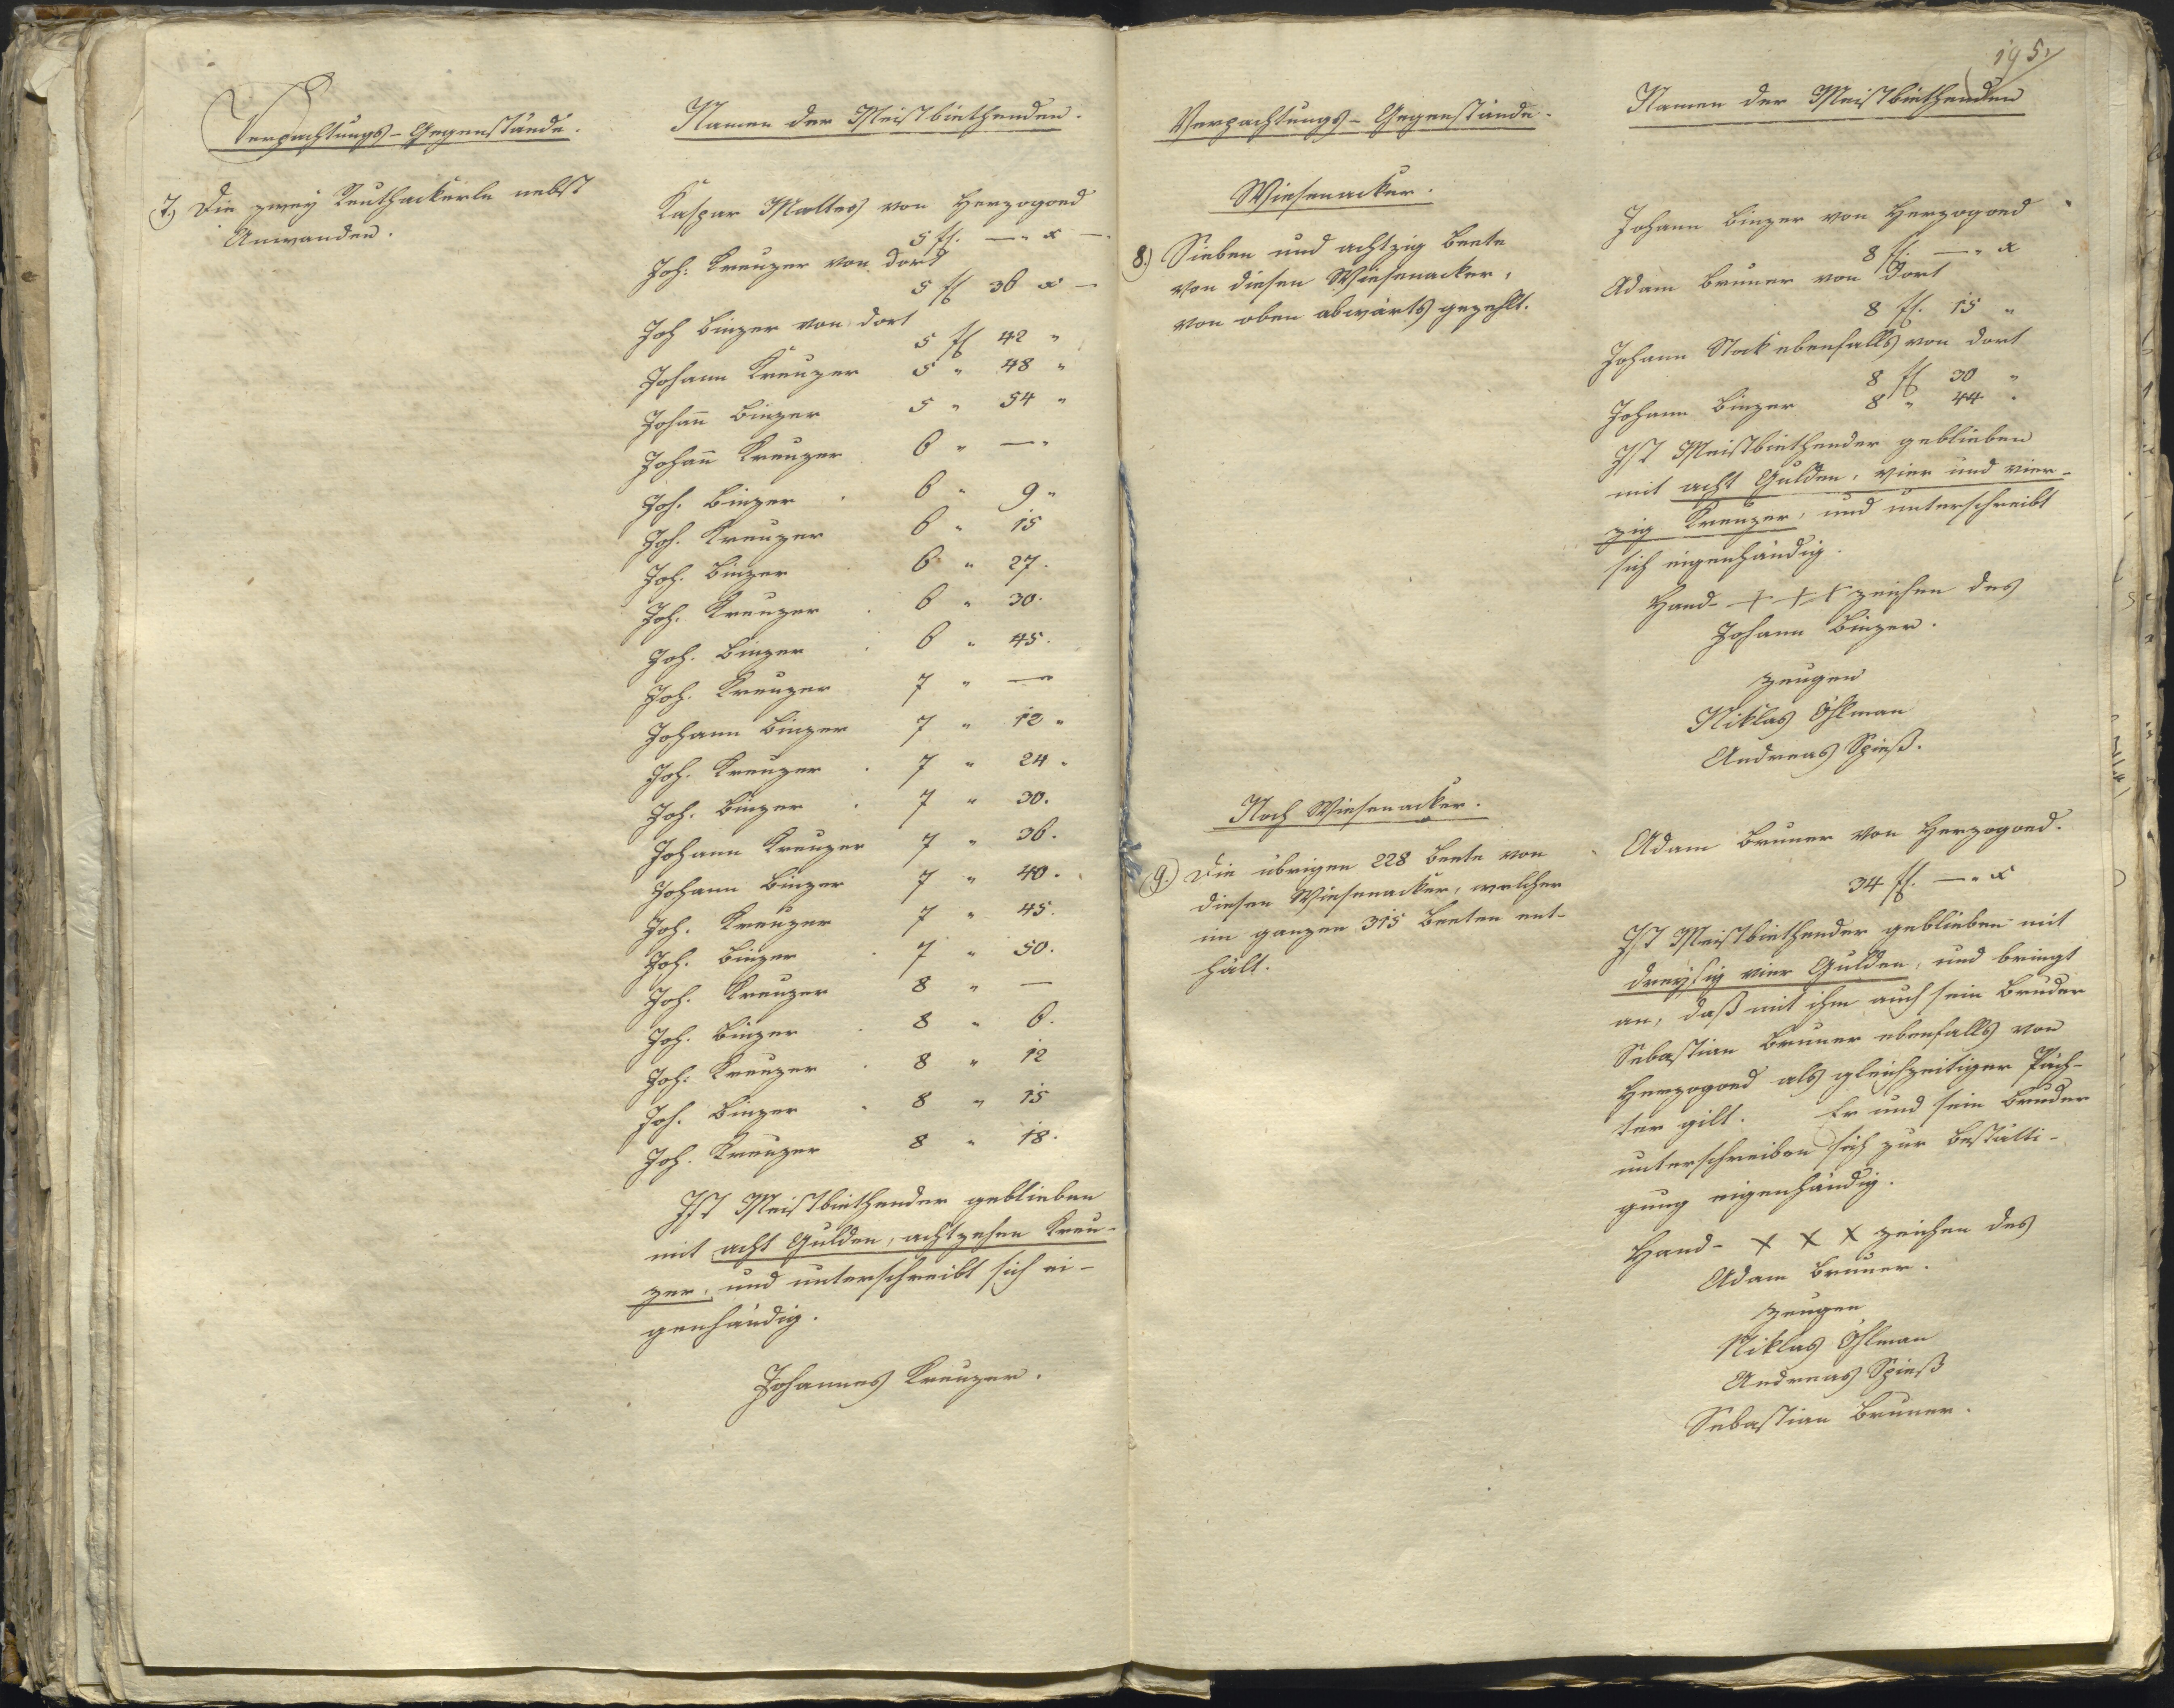 Verpachtungs-Gegenstände.
Namen der Meistbiethenden.
7.) Die zwey Reuthackerln nebst
Anwanden.
Kaspar Maltes von Herzogoed
5 fl. —" x —
Joh. Kreuzer von dort
5 fl 36 x —
Joh Binzer von dort
5 fl 42 "
Johann Kreuzer 5 " 48 "
Johan̅ Binzer 5 " 54 "
Johan̅ Kreuzer 6 " —"
Joh. Binzer . 6 " 9 "
Joh. Kreuzer 6 " 15
Joh. Binzer . 6 " 27.
Joh. Kreuzer . 6 " 30.
Joh. Binzer . 6 " 45.
Joh. Kreuzer 7 " —"
Johann Binzer 7 " 12 "
Joh. Kreuzer . 7 " 24 "
Joh. Binzer . 7 " 30.
Johann Kreuzer 7 " 36.
Johann Binzer 7 " 40.
Joh. Kreuzer 7 " 45.
Joh. Binzer . 7 " 50.
Joh. Kreuzer 8 " —
Joh. Binzer . 8 " 6.
Joh. Kreuzer . 8 " 12
Joh. Binzer . 8 " 15
Joh. Kreuzer 8 " 18.
Ist Meistbiethender geblieben
mit acht Gulden, achtzehen Kreu-
zer, und unterschreibt sich ei-
genhändig.
Johannes Kreuzer.
195.
Verpachtungs-Gegenstände.
Namen der Meistbiethenden
Wiesenacker.
8.) Sieben und achtzig Beete
von diesen Wiesenacker,
von oben abwärts gezehlt.
Johann Binzer von Herzogoed
8 fl. —" x
Adam Bruner von dort
8 fl. 15 "
Johann Stock ebenfalls von dort
8 fl 30 "
Johann Binzer 8 " 44 "
Ist Meistbiethender geblieben
mit acht Gulden, vier und vier-
zig Kreuzer, und unterschreibt
sich eigenhändig.
Hand- + + + zeichen des
Johann Binzer.
Zeugen
Niklas Öhlman
Andreas Spieß.
Noch Wiesenacker.
9.) Die übrigen 228 Beete von
diesen Wiesenacker, welcher
im ganzen 315 Beeten ent-
hält.
Adam Bruner von Herzogoed.
34 fl. —" x
Ist Meistbiethender geblieben mit
dreyßig vier Gulden, und bringt
an, daß mit ihm auch sein Bruder
Sebastian Bruner ebenfalls von
Herzogoed als gleichzeitiger Päch-
ter gilt. Er und sein Bruder
unterschreiben sich zur Bestätti-
gung eigenhändig.
Hand- x x x zeichen des
Adam Bruner.
Zeugen
Niklas Öhlman
Andreas Spieß
Sebastian Bruner.